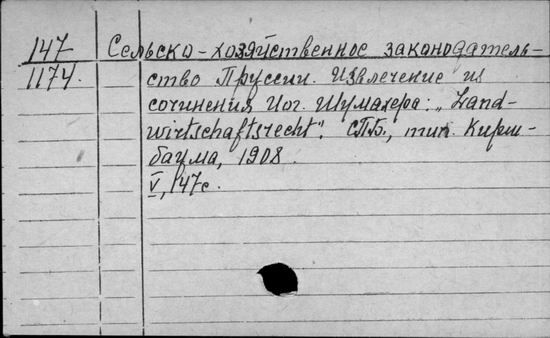 147 Сельско-хозяйственное законодатель-
1174. ство Пруссии. Извлечение из
сочинения Иог. Шумахера: „Land-
wirtschaftsrecht". СПБ, тип. Кирш-
баума, 1908.
V, 147 с.